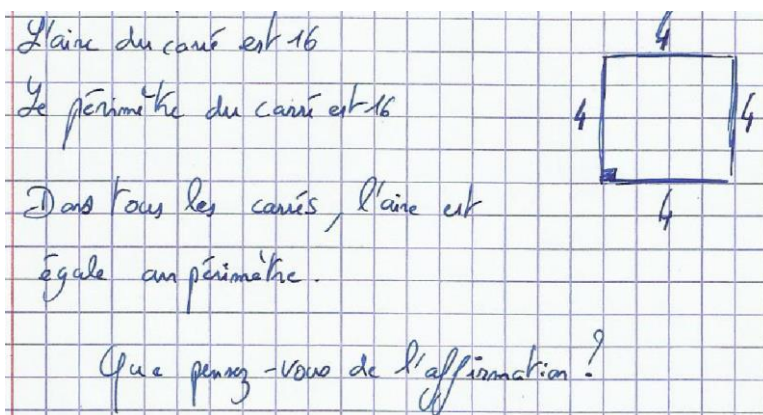 L'aire du carré est 16
4
Le périmètre du carré est 16
4
4
Dans tous les carrés, l'aire est
4
égale au périmètre.
Que pensez-vous de l'affirmation ?